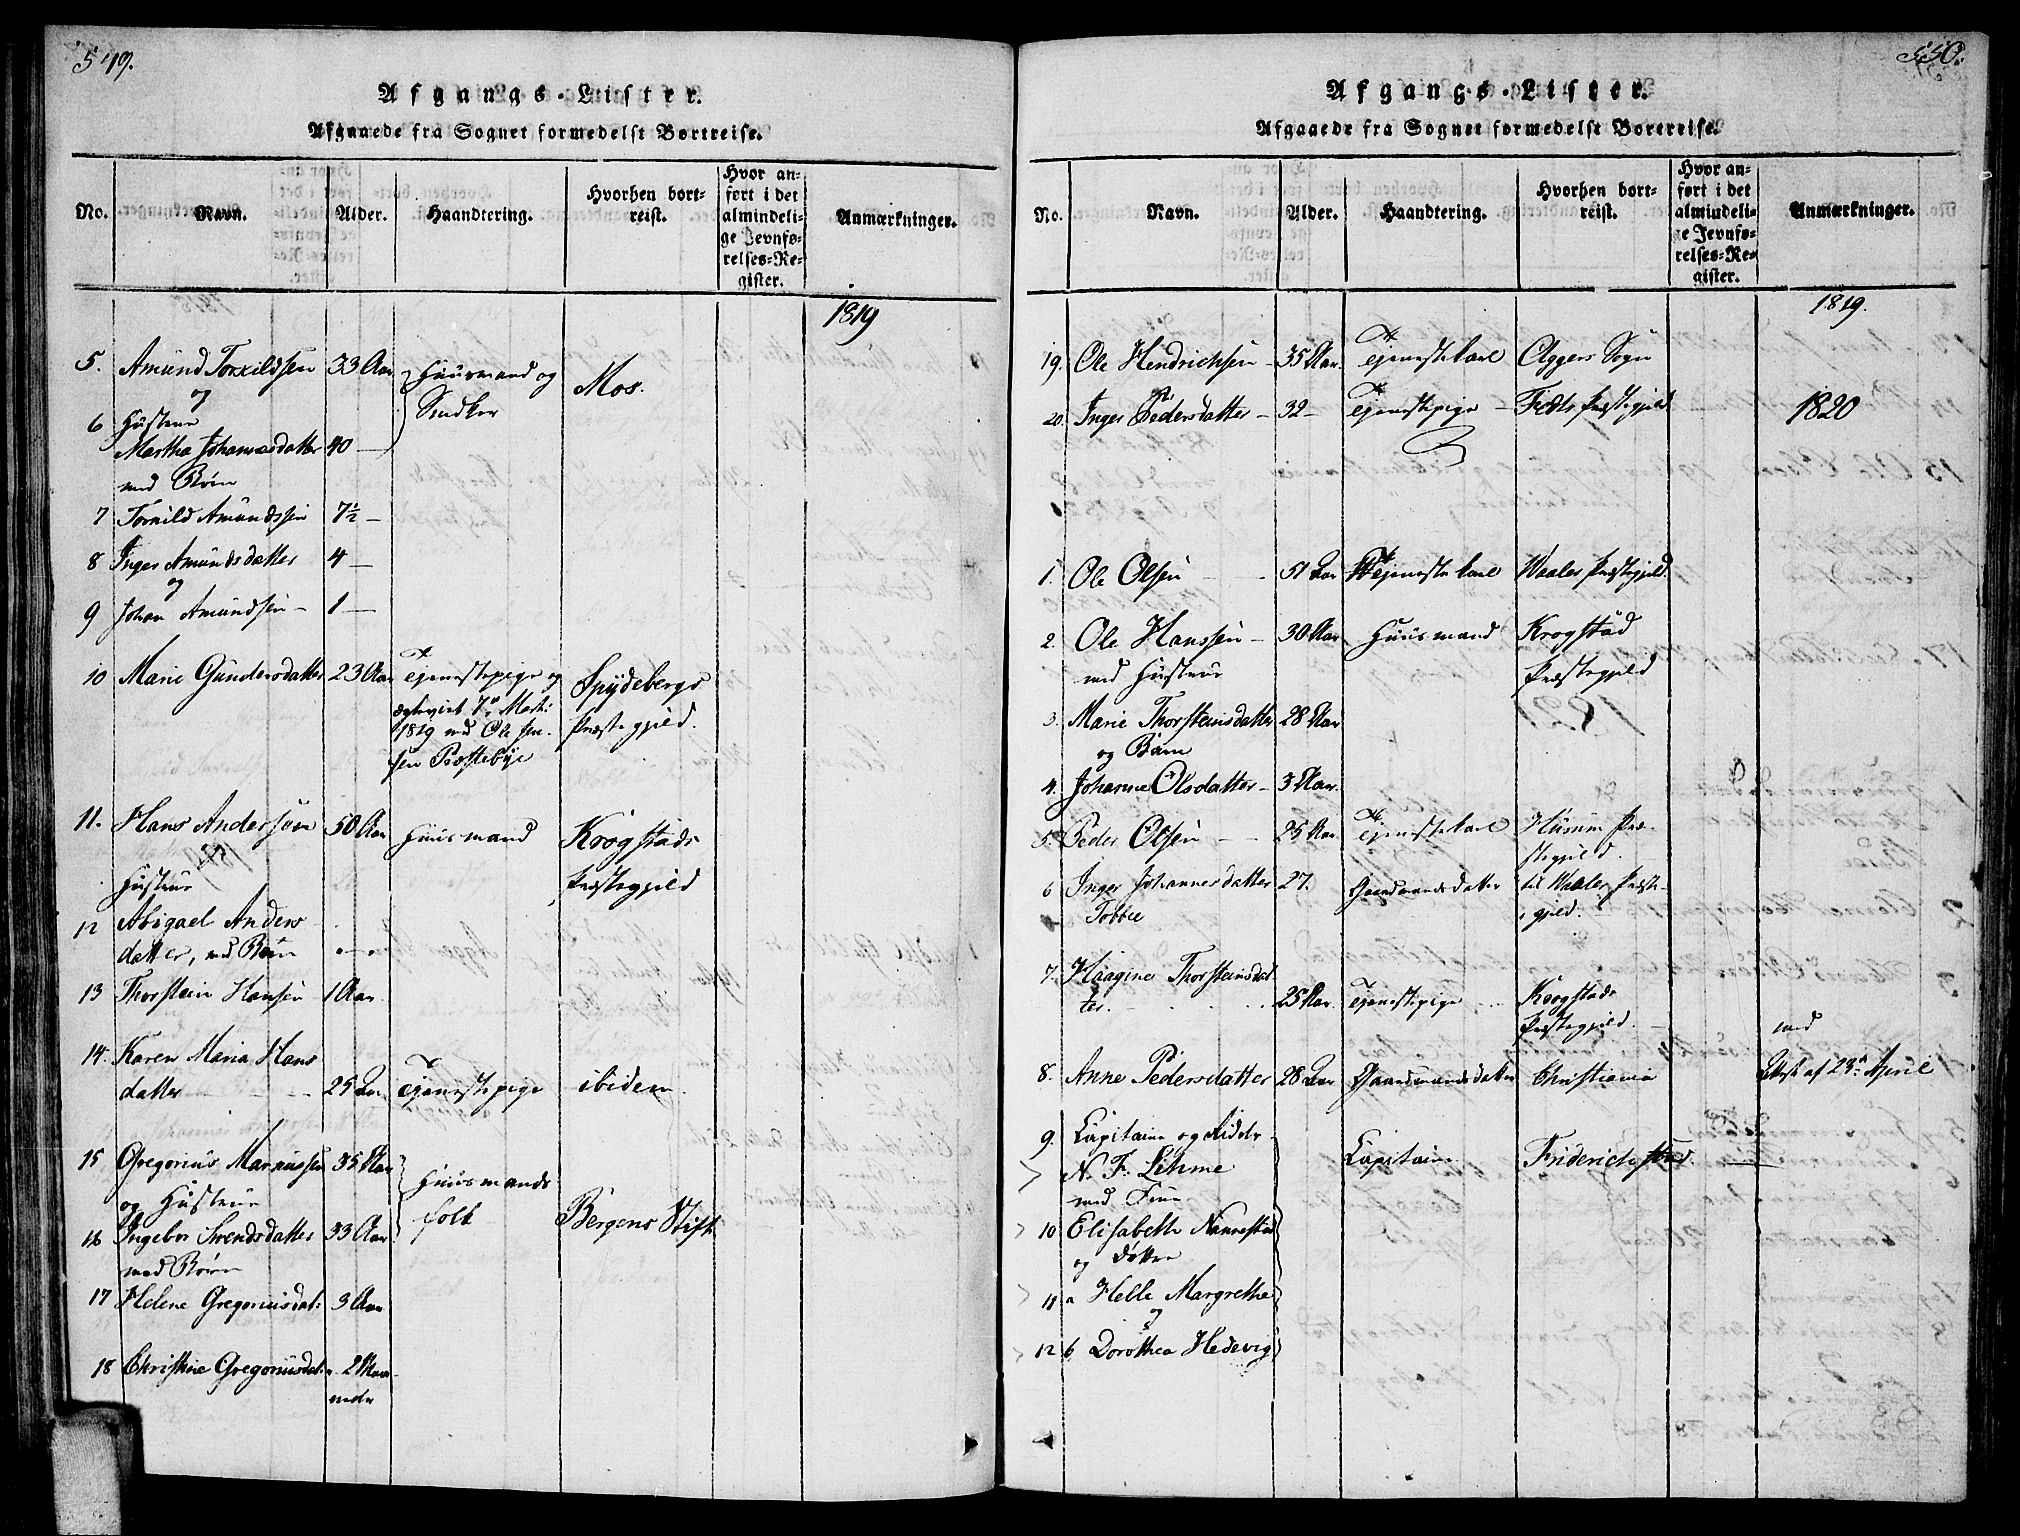 549.
Afgangs-Lister.
Afgaaede fra Sognet formedelst Bortreise.
No. Navn. Alder. Haandtering. Hvorhen bortreist. Hvor anført i det almindelige Jevnførelses-Register. Anmærkninger.
1819
5. Amund Torkildsen 33 Aar Huusmand og Mos.
og
6 Hustrue
Martha Johannesdatter 40 —
med Børn
7 Torkild Amundssen 7½ —
8 Inger Amundsdatter 4 —
og
9 Johan Amundsen — 1 —
10 Marie Gundersdatter 23 Aar Tjenestepige og Spydebergs
1819 med Ole Præstegjeld.
sen Præstebye
11. Hans Andersøn 50 Aar Huusmand Krogstads
Hustrue Præstegjeld
12 Abigael Anders
datter, med Børn
13 Thorstein Hansen 1 Aar
14. Karen Maria Hans
datter 25 Aar Tjenestepige ibidem.
15 Gregorius Marcussen 35 Aar Huusmands
og Hustrue folk Bergens Stift
16 Ingebor Svendsdatter 33 Aar
med Børn
17 Helene Gregoriusdat: 3 Aar
18 Christine Gregoriusdat: 2 Maa
neder
550.
Afgangs-Lister.
Afgaaede fra Sognet formedelst Bortreise.
No. Navn. Alder. Haandtering. Hvorhen bortreist. Hvor anført i det almindelige Jevnførelses-Register. Anmærkninger.
1819.
19. Ole Hendrichsen — 35 Aar Tjenestekarl Aggers Sogn
20. Inger Pedersdatter — 32 — Tjenestepige — Præstegjeld
1820
1. Ole Olsen 51 Aar Tjenestekarl Waaler Præstegjeld.
2. Ole Hanssen — 30 Aar Huusmand Krogstad
med Hustrue Præstegjeld
3. Marie Thorsteinsdatter 28 Aar
og Barn
4. Johanne Olsdatter — 3 Aar.
5. Peder Olsen 25 Aar Tjenestekarl Præ-
stegjeld.
6 Inger Johannesdatter 27. Gaardmandsdatter til Waaler Præste-
gjeld.
7. Haagine Thorsteinsdat
ter. 25 Aar. Tjenestepige Krogstads
Præstegjeld.
8. Anne Pedersdatter 28 Aar Gaardmandsdatter Christiania med
Attest af 23de April
9. Capitaine og Ridder
N. F. Lehme Capitaine Friderichstad.
med Frue
10 Elisabeth
og Døttre
11 a Helle Margrethe
og
12 b Dorothea Hedevig